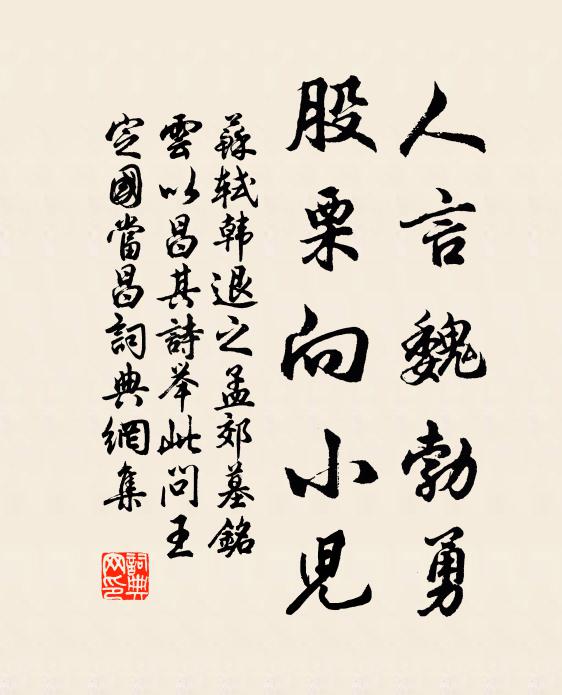 人言魏勃勇
股栗向小児
蘇軾韩退之孟郊墓銘
雲以昌其詩举此問王
定國當昌詞典網集
詞典網印